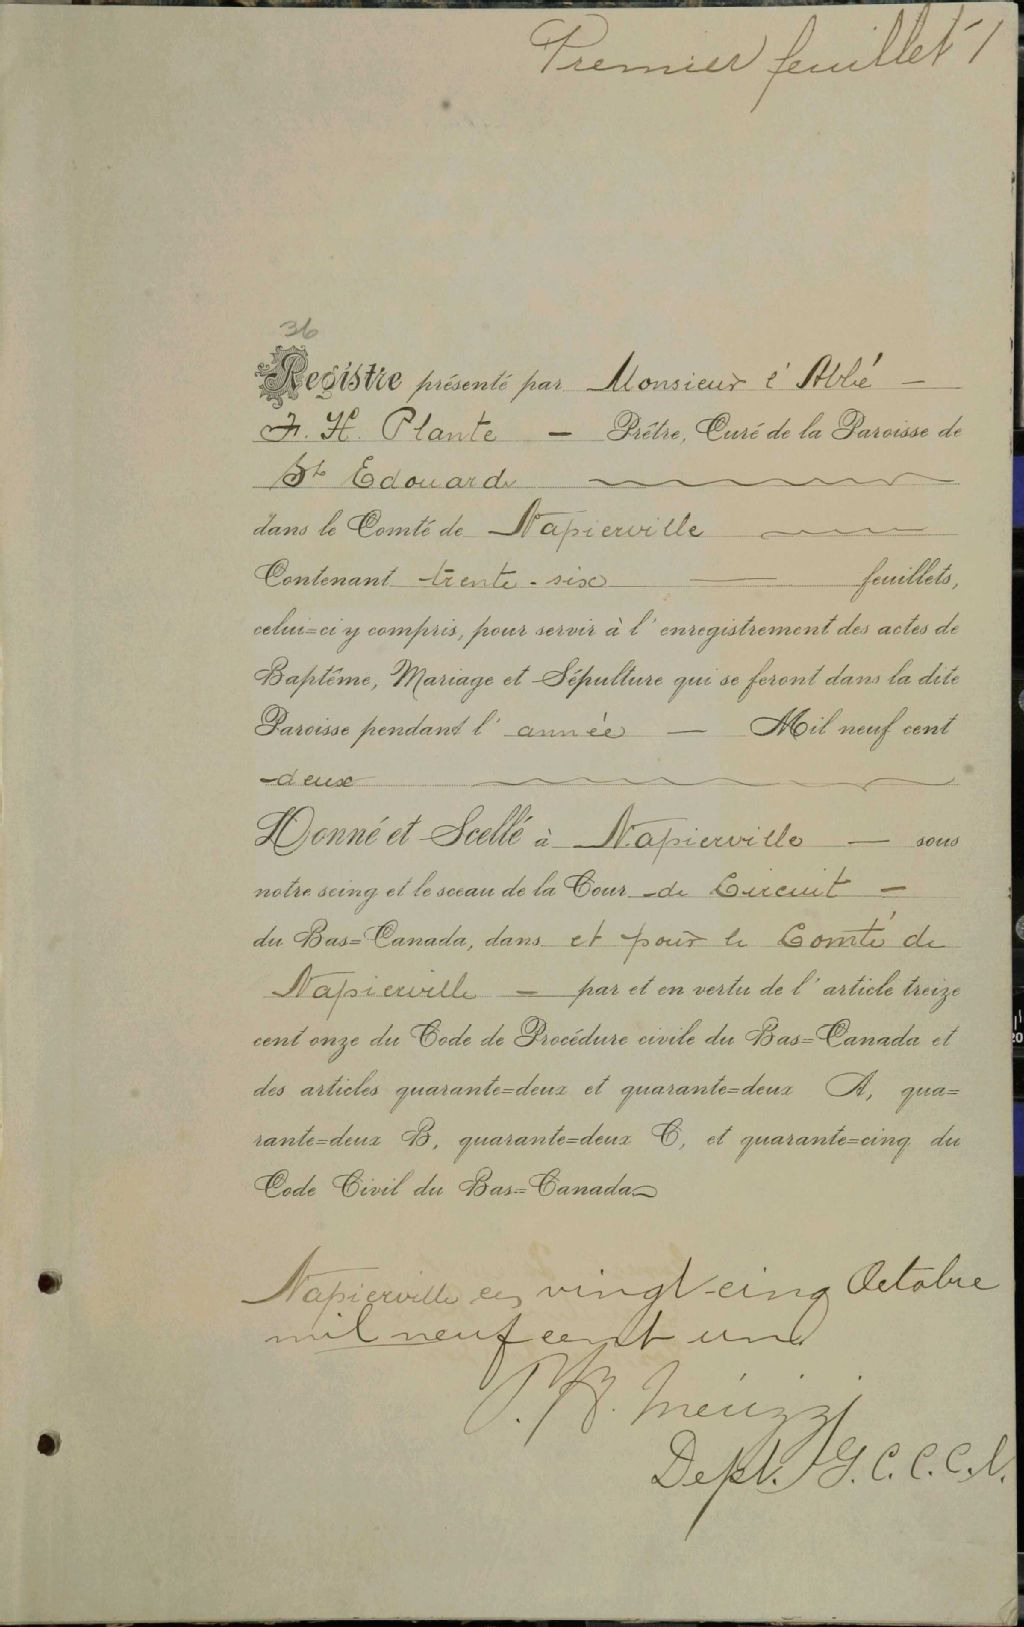 Premier feuillet 1
36
Registre présenté par Monsieur l'Abbé —
F. H. Plante — Prêtre, Curé de la Paroisse de
St Edouard
dans le Comté de Napierville
Contenant trente-six — feuillets,
celui=ci y compris, pour servir à l'enregistrement des actes de
Baptême, Mariage et Sépulture qui se feront dans la dite
Paroisse pendant l'année — Mil neuf cent
deux
Donné et Scellé à Napierville — sous
notre seing et le sceau de la Cour de Circuit —
du Bas=Canada, dans et pour le Comté de
Napierville — par et en vertu de l'article treize
cent onze du Code de Procédure civile du Bas=Canada et
des articles quarante=deux et quarante=deux A, qua=
rante=deux B, quarante=deux C, et quarante=cinq du
Code Civil du Bas=Canada
Napierville ce vingt-cinq Octobre
mil neuf cent un
Dept. G. C. C. C. N.